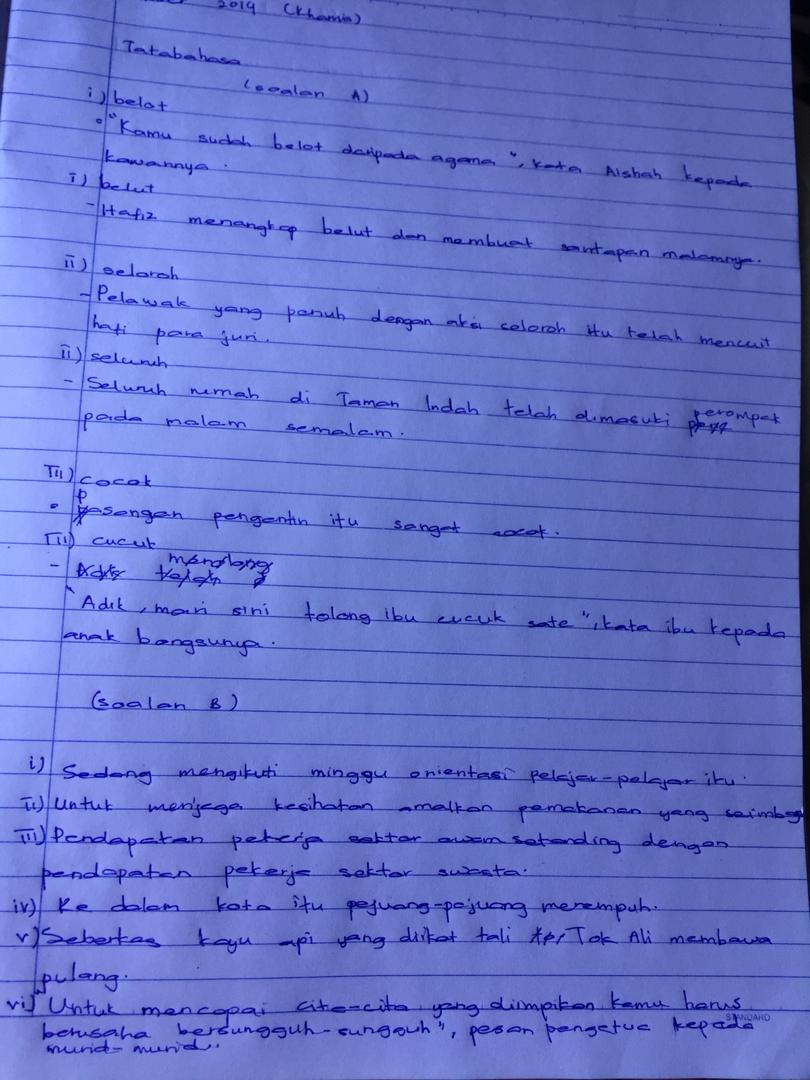 2019 (Khamis)
Tatabahasa
(soalan A)
i) belot
"Kamu sudah belot daripada agama", kata Aishah kepada
kawannya.
i) belut
- Hafiz menangkap belut dan membuat santapan malamnya.
ii) seloroh
- Pelawak yang penuh dengan aksi seloroh itu telah mencuit
hati para juri.
ii) seluruh
- Seluruh rumah di Taman Indah telah dimasuki perompak
pada malam semalam.
iii) cocok
Pasangan pengantin itu sangat cocok.
iii) cucuk
- menolong
"Adik, mari sini tolong ibu cucuk sate", kata ibu kepada
anak bongsunya.
(Soalan B)
i) Sedang mengikuti minggu orientasi pelajar-pelajar itu.
ii) Untuk menjaga kesihatan amalkan pemakanan yang seimbang
iii) Pendapatan pekerja sektor awam setanding dengan
pendapatan pekerja sektor swasta.
iv) Ke dalam kota itu pejuang-pejuang merempuh.
v) Seberkas kayu api yang diikat tali Tok Ali membawa
pulang.
vi) Untuk mencapai cita-cita yang diimpikan kamu harus
berusaha bersungguh-sungguh", pesan pengetua kepada
murid-murid.
STANDARD